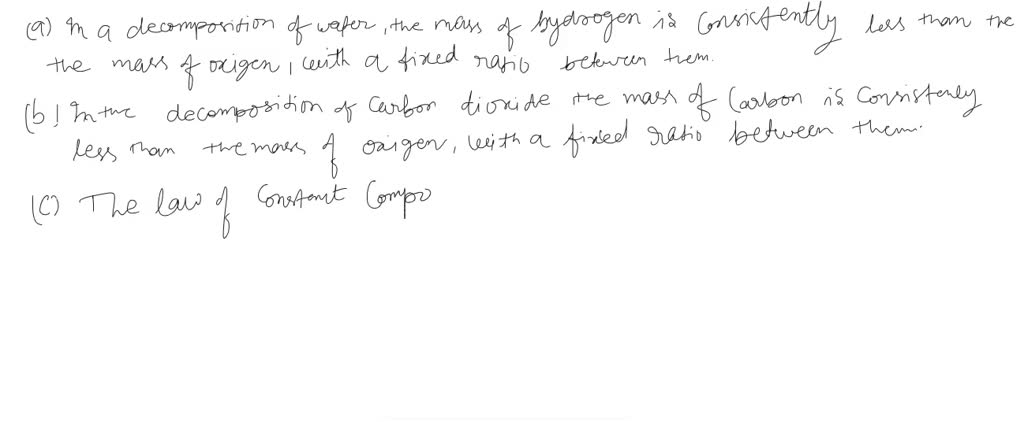 (a) In a decomposition of water, the mass of hydrogen is consistently less than the
the mass of oxigen, with a fixed ratio between them.
(b) In the decomposition of carbon dioxide the mass of Carbon is consistenly
less than the mass of oxigen, with a fixed ratio between them.
(c) The law of constant Compo